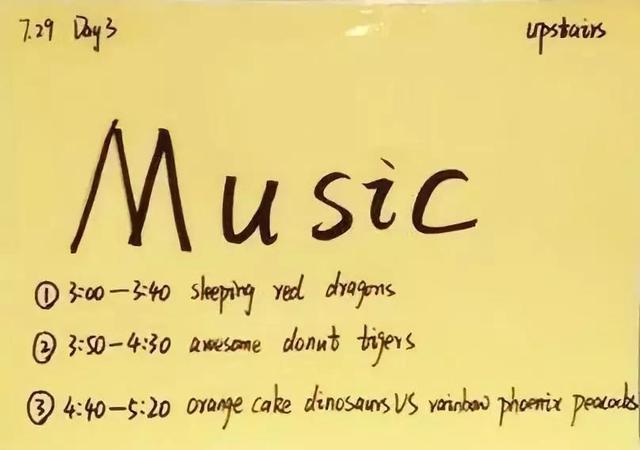 7.29 Day3 upstairs
Music
① 3:00-3:40 sleeping red dragons
② 3:50-4:30 awesome donut tigers
③ 4:40-5:20 orange cake dinosaurs VS rainbow phoenix peacocks